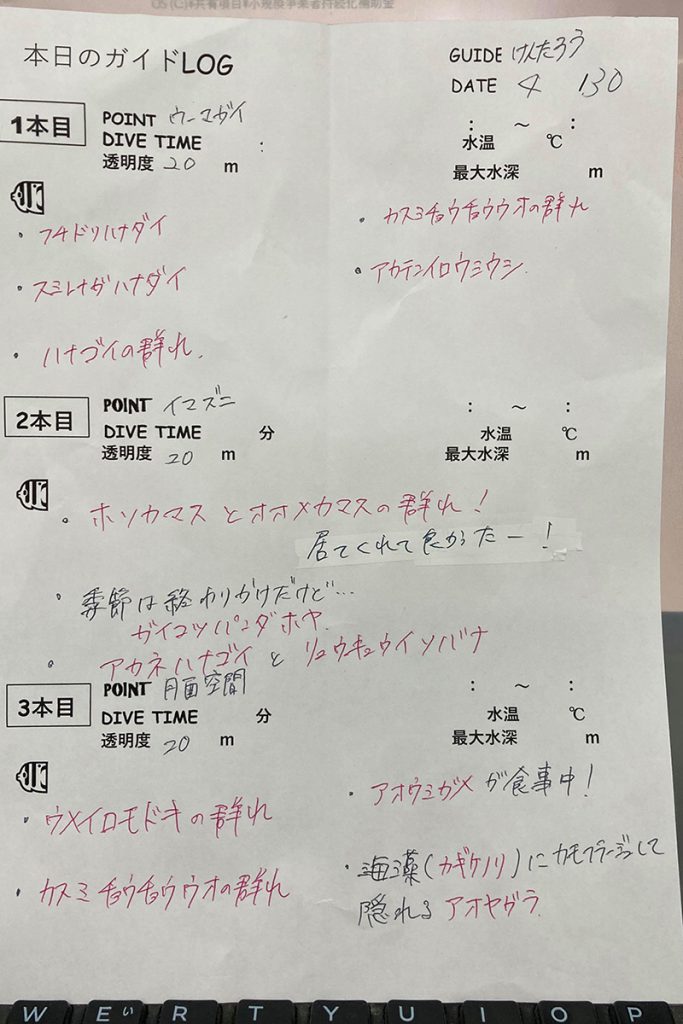 OS (C)¥共有項目¥小規模事業者持続化補助金
本日のガイドLOG
GUIDE けんたろう
DATE 4 130
1本目
POINT ウーマガイ
DIVE TIME :
透明度 20 m
: ~ :
水温 ℃
最大水深 m
・フチドリハナダイ
・スミレナガハナダイ
・ハナゴイの群れ.
・カスミチョウチョウウオの群れ
・アカテンイロウミウシ.
2本目
POINT イマズニ
DIVE TIME 分
透明度 20 m
: ~ :
水温 ℃
最大水深 m
・ホソカマスとオオメカマスの群れ!
居てくれて良かったー!
・季節は終わりかけだけど…
ガイコツパンダホヤ.
・アカネハナゴイとリュウキュウイソバナ
3本目
POINT 月面空間
DIVE TIME 分
透明度 20 m
: ~ :
水温 ℃
最大水深 m
・ウメイロモドキの群れ
・カスミチョウチョウウオの群れ
・アオウミガメが食事中!
・海藻(カギケノリ)にカモフラージュして
隠れるアオヤガラ.
W E い R T Y U I O P